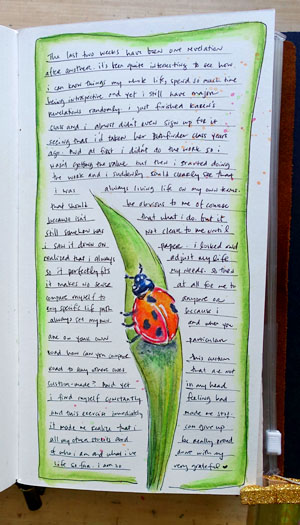 The last two weeks have been one revelation
after another. it's been quite interesting to see how
i can know things my whole life, spend so much time
being introspective and yet i still have major
revelations randomly. i just finished Karen's
class and i almost didn't even sign up for it
seeing that i'd taken her Pathfinder class years
ago. And at first i didn't do the work so i
wasn't getting the value but then i started doing
the work and i suddenly could clearly see that
i was always living life on my own terms.
that should be obvious to me of course
because isn't that what i do. but it
still somehow was not clear to me until
i saw it down on paper. i looked and
realized that i always adjust my life
so it perfectly fits my needs. so then
it makes no sense at all for me to
compare myself to anyone or
any specific life path because i
always set my own and when you
are on your own particular
road how can you compare this custom
road to any others over that are not
custom-made? And yet in my head
i find myself constantly feeling bad
and this exercise immediately made me stop.
it made me realize that i can give up
all my other stories and be really proud
of who i am and what i've done with my
life so far. i am so very grateful